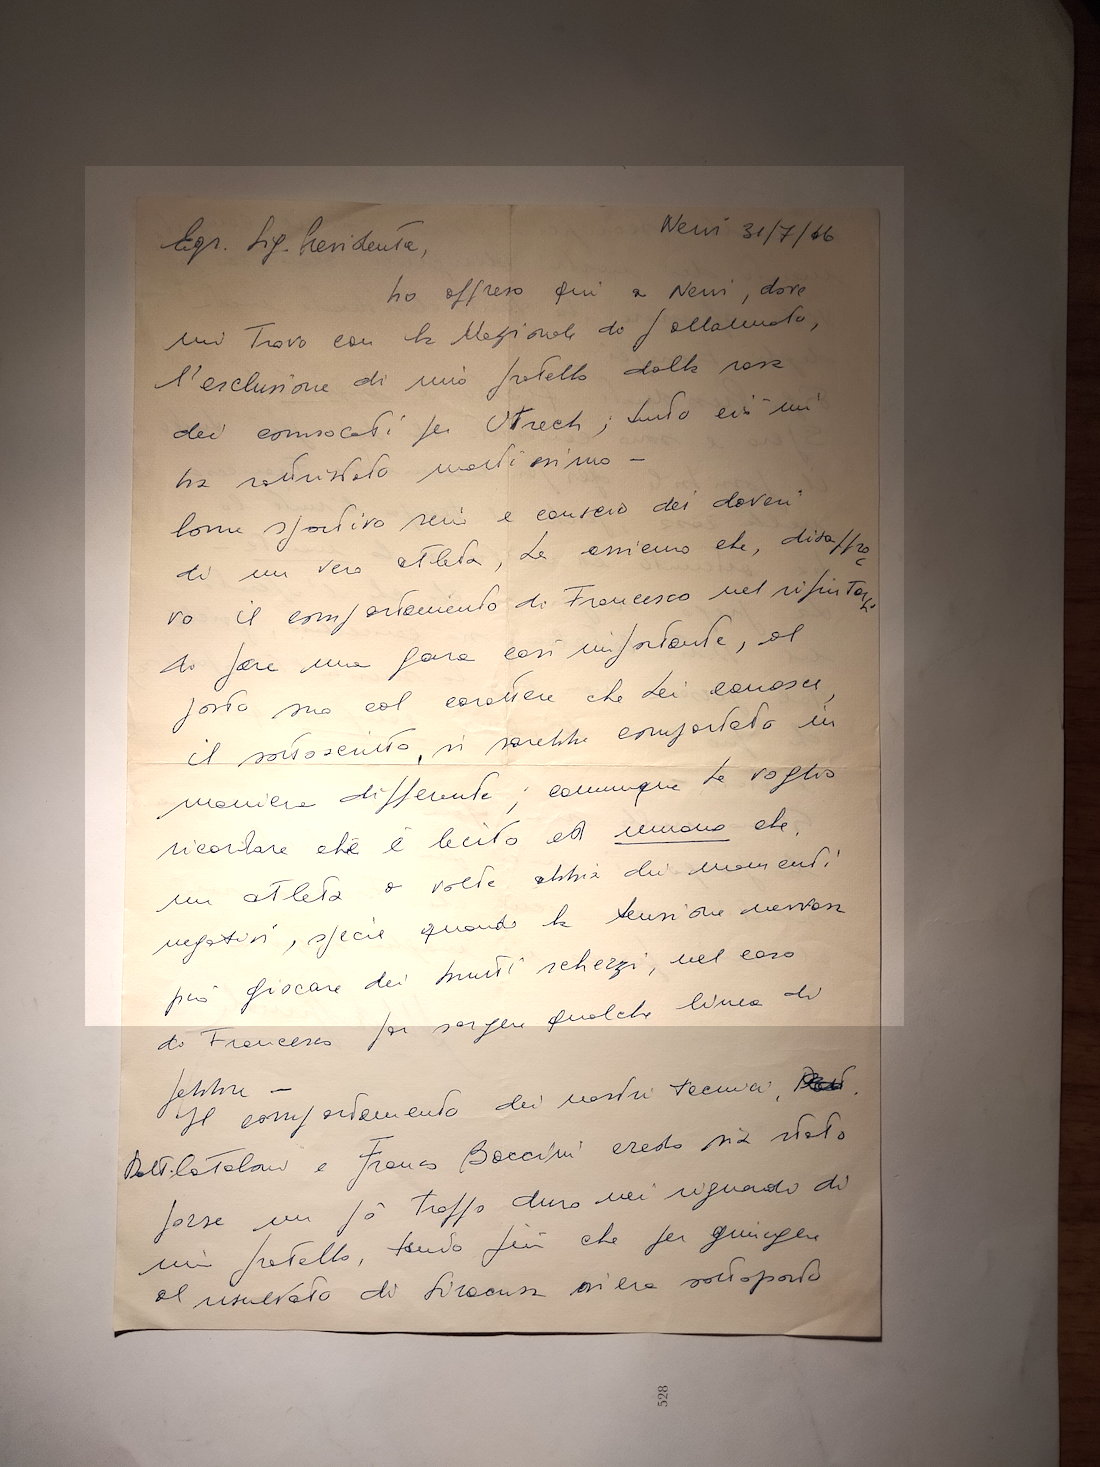 Egr. Sig. Presidente,
Nervi 31/7/66
ho appreso qui a Nervi, dove
mi trovo con la Nazionale di pallanuoto,
l'esclusione di mio fratello dalla rosa
dei convocati per Utrech; tutto ciò mi
ha rattristato moltissimo -
Come sportivo serio e conscio dei doveri
di un vero atleta, Le assicuro che, disappro
vo il comportamento di Francesco nel rifiutarsi
di fare una gara così importante, al
posto suo col carattere che Lei conosce,
il sottoscritto, si sarebbe comportato in
maniera differente; comunque Le voglio
ricordare che è lecito ed umano che,
un atleta a volte abbia dei momenti
negativi, specie quando la tensione nervosa
può giocare dei brutti scherzi, nel caso
di Francesco far sorgere qualche linea di
febbre -
Il comportamento dei nostri tecnici,
Dott. Cataloni e Franco Baccini credo sia stato
forse un pò troppo duro nei riguardi di
mio fratello, tanto più che per giungere
al risultato di Siracusa si era sottoposto
528